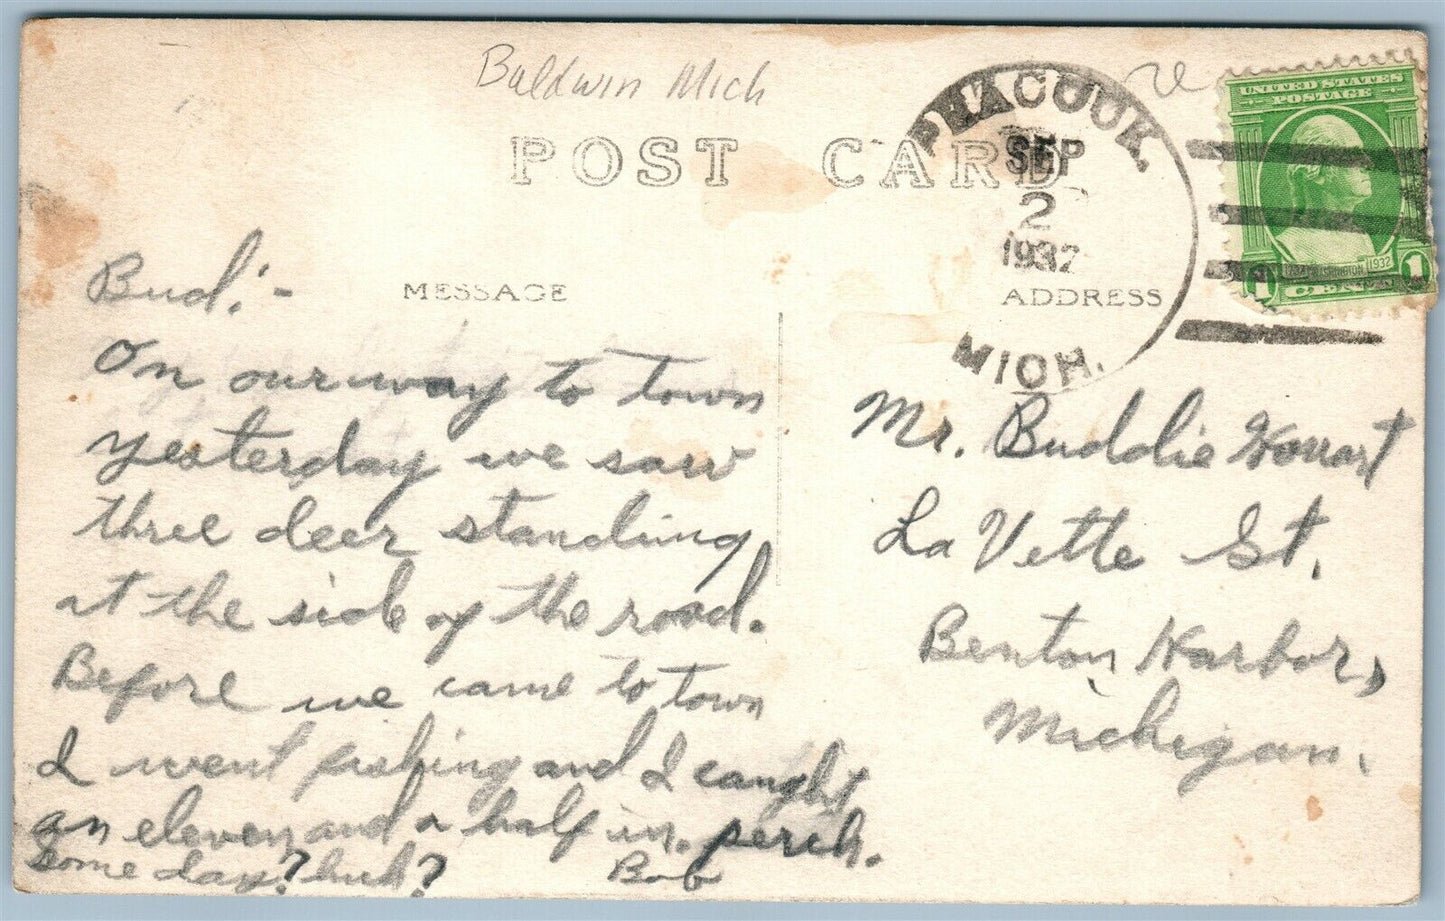 Baldwin Mich
POST CARD
PEACOCK.
SEP
2
1932
MICH.
UNITED STATES
POSTAGE
1732 WASHINGTON 1932
1 CENT 1
MESSAGE
ADDRESS
Bud:-
On our way to town
yesterday we saw
three deer standing
at the side of the road.
Before we came to town
I went fishing and I caught
an eleven and a half in. perch.
Some day? huh?
Bob
Mr. Buddie
La Vette St.
Benton Harbor,
Michigan.